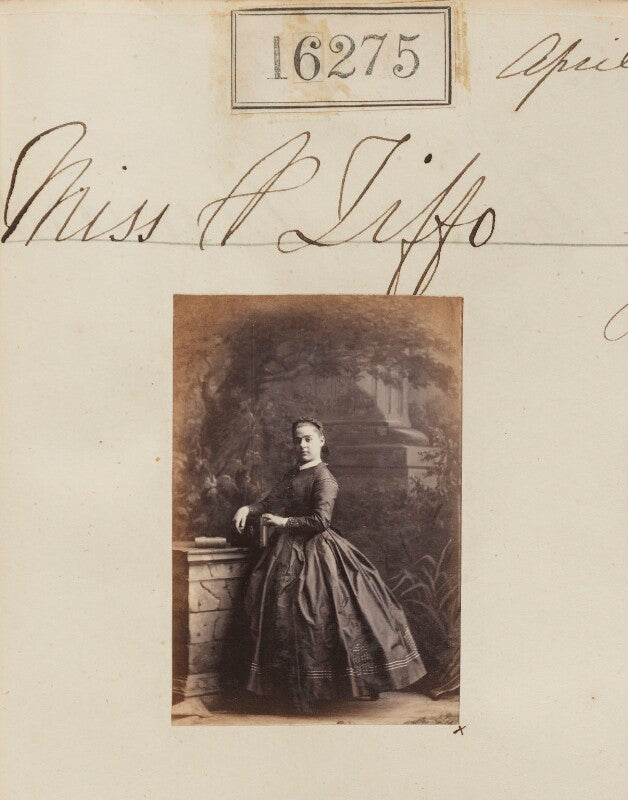 16275
April
Miss P Tiffo
x